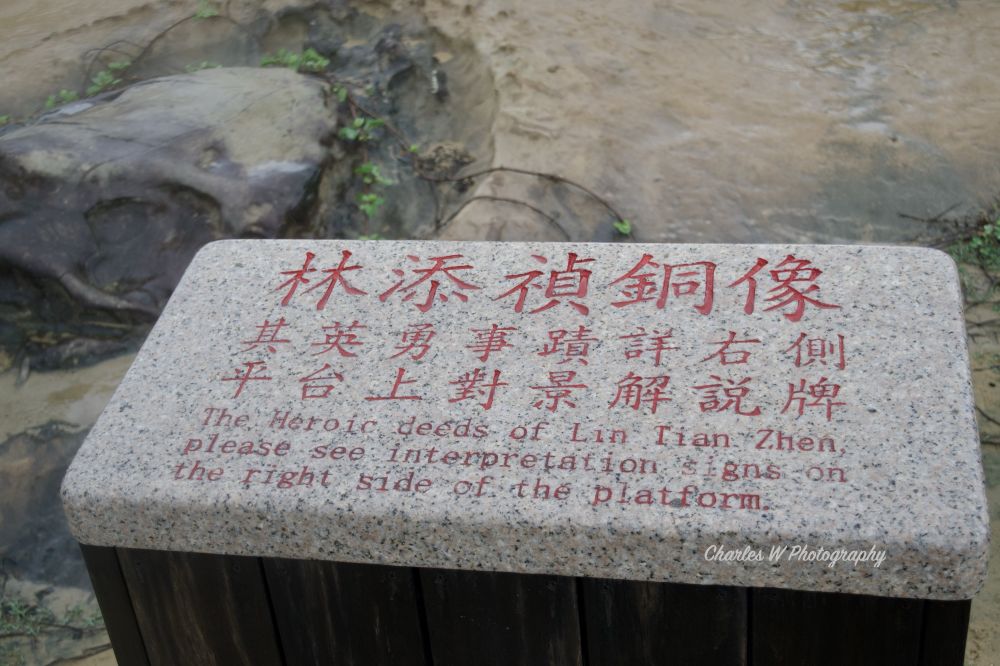 林添禎銅像
其英勇事蹟詳右側
平台上對景解說牌
The Heroic deeds of Lin Tian Zhen,
please see interpretation signs on
the right side of the platform.
Charles W Photography